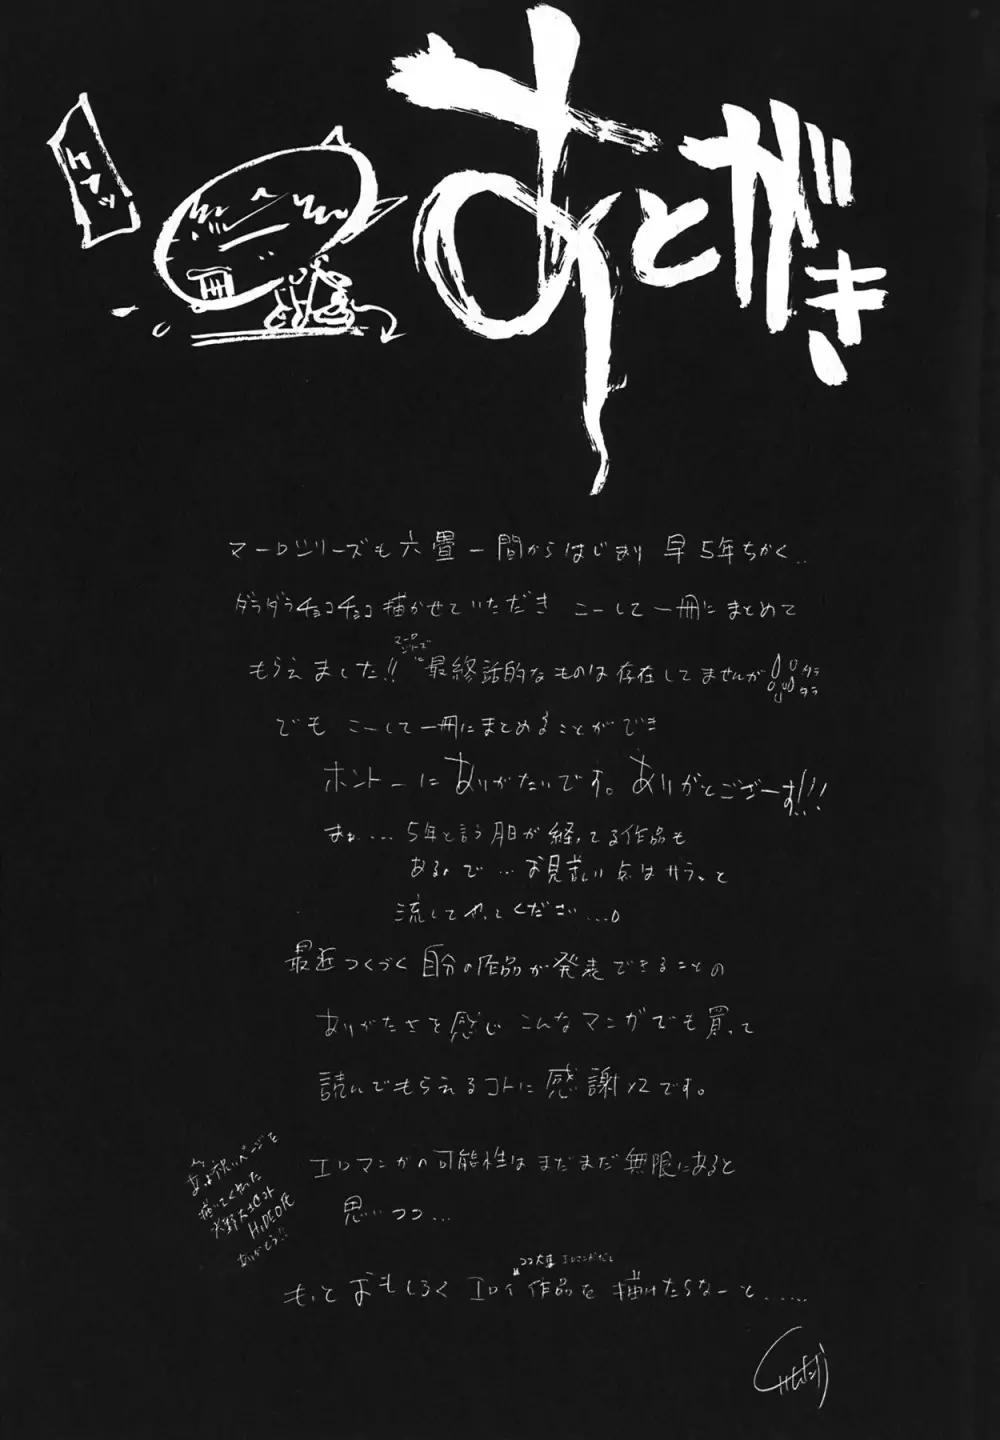 あとがき
マーロシリーズも六畳一間からはじまり 早5年ちかく..
ダラダラチョコチョコ描かせていただき こーして一冊にまとめて
もらえました!! 最終話的なものは存在してませんが
マーロシリーズ
ダラダラ
でも こーして一冊にまとめることができ
ホントーにありがたいです。ありがとござーす!!!
まぁ....5年と言う月日が経ってる作品も
あるので...お見苦しい点はサラっと
流してやってください...
最近つくづく自分の作品が発表できることの
ありがたさを感じ こんなマンガでも買って
読んでもらえるコトに感謝×2です。
エロマンガの可能性はまだまだ無限にあると
思いつつ...
もっとおもしろくエロイ作品を描けたらなーと......
ココ大事 エロマンガだし
お祝いページを
描いてくれた
HIDEO氏
ありがとう!!